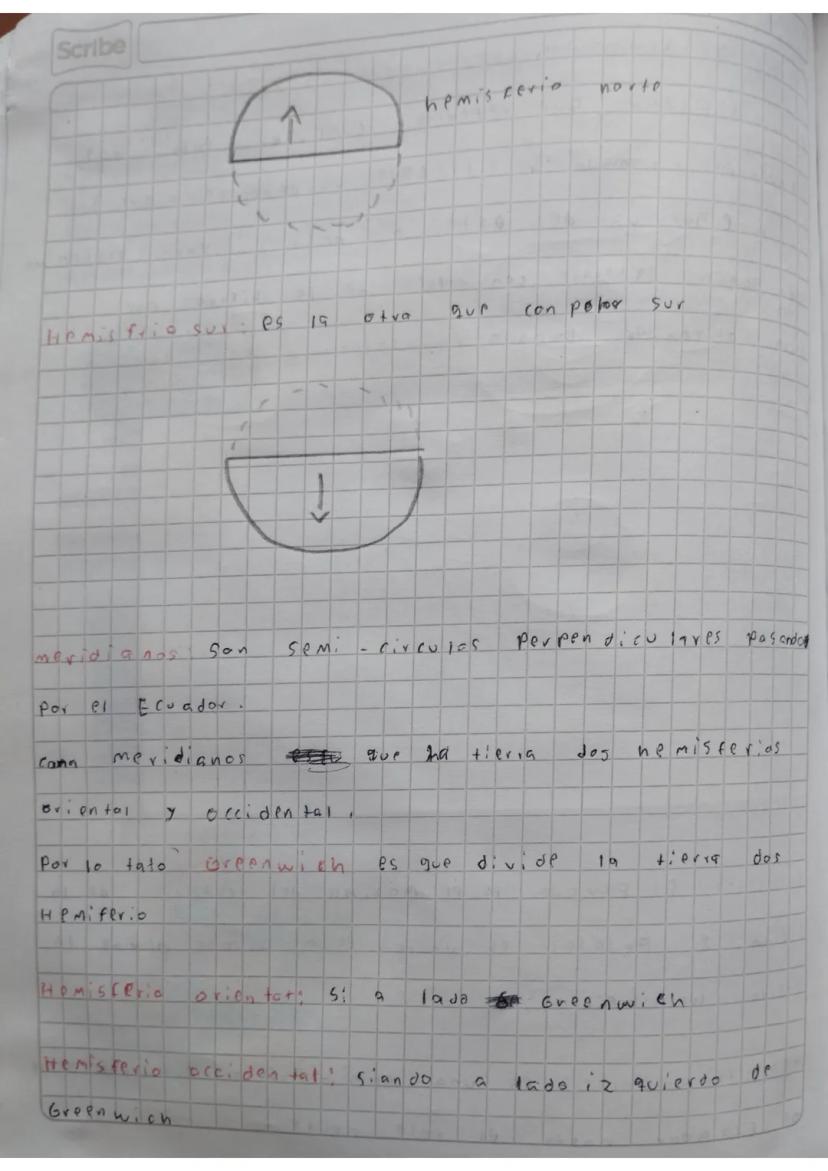 Scribe
hemisferio norte
Hemisfrio sur: es la otra que con polor sur
meridianos son semi-circulos perpendiculares pasando
por el Ecuador.
meridianos que la tierra dos hemisferios
oriental y occidental.
Por lo tato Greenwich es que divide la tierra dos
Hemiferio
Hemisferio orientar: Si a lado Greenwich
Hemisferio occidental: siando a lado izquierdo de
Greenwich